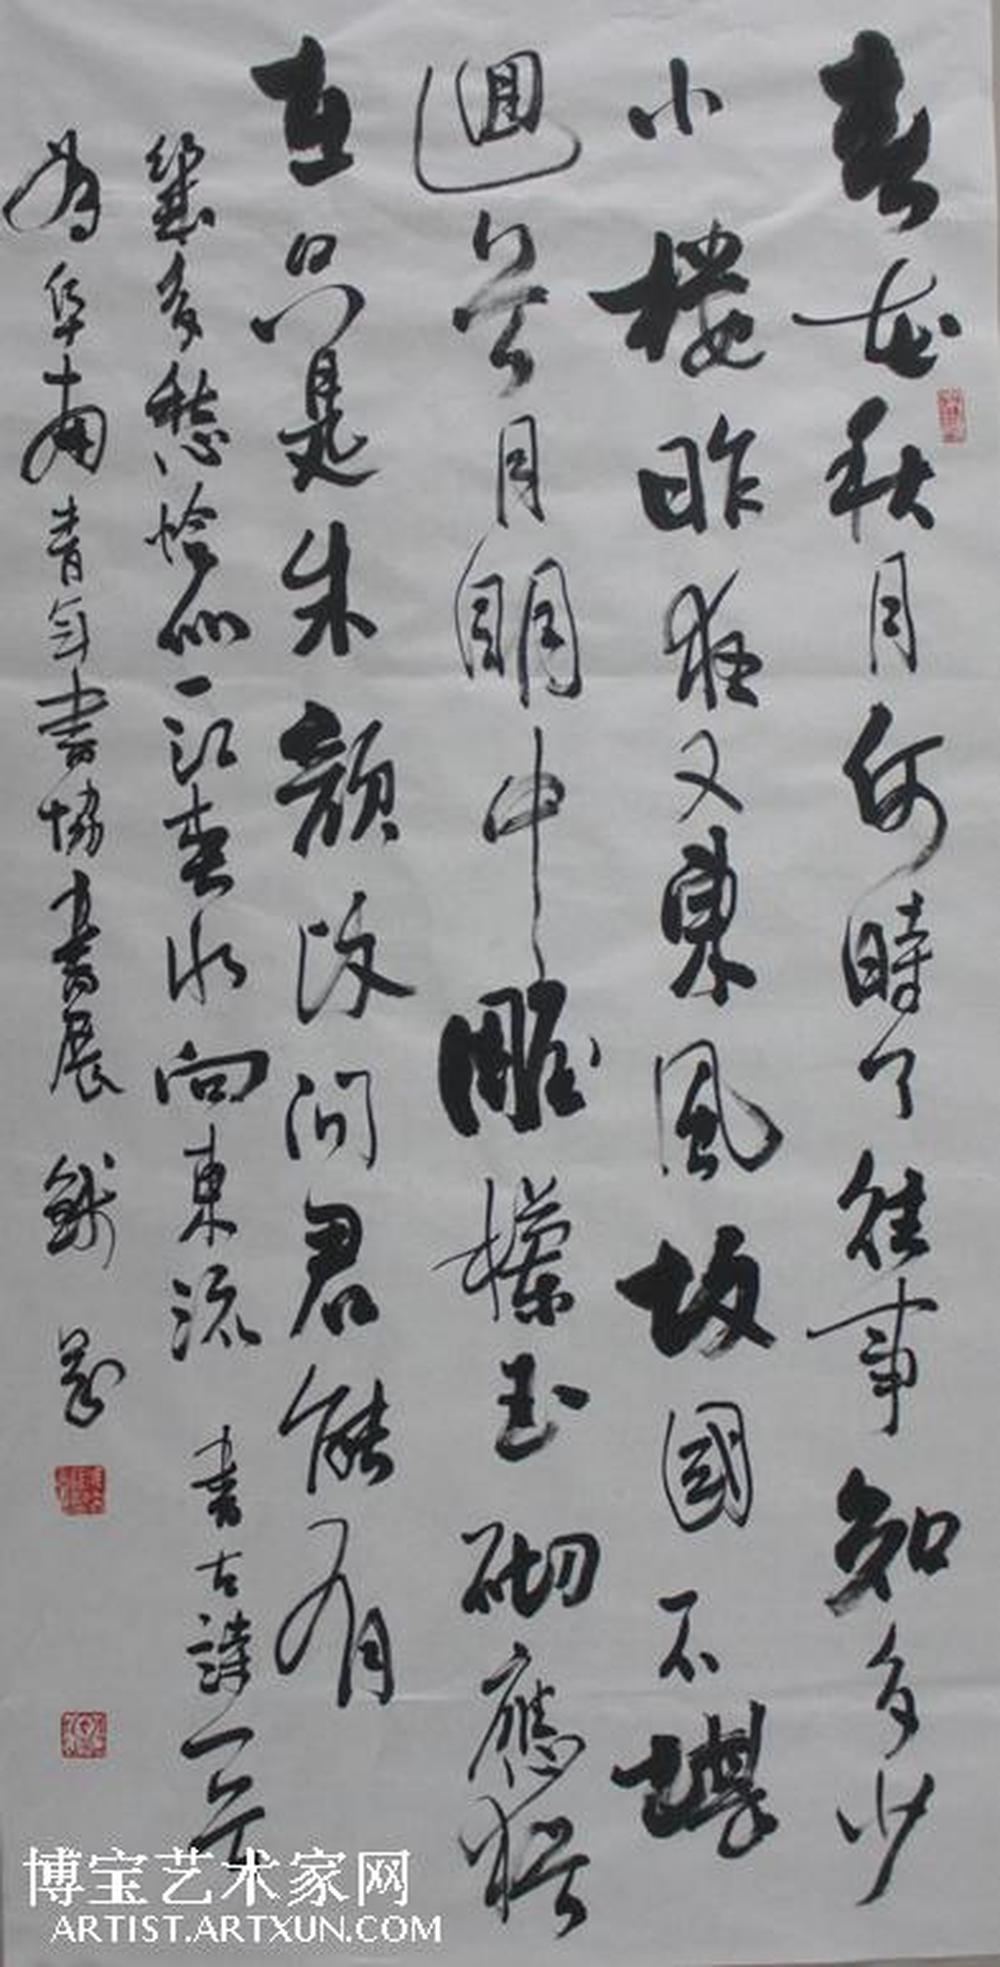 春花秋月何時了往事知多少
小楼昨夜又東風故國不堪
迴首月明中雕欄玉砌應猶
在只是朱颜改问君能有
幾多愁恰似一江春水向東流 書古詩一首
為阜南青年書協書展
博宝艺术家网
ARTIST.ARTXUN.COM